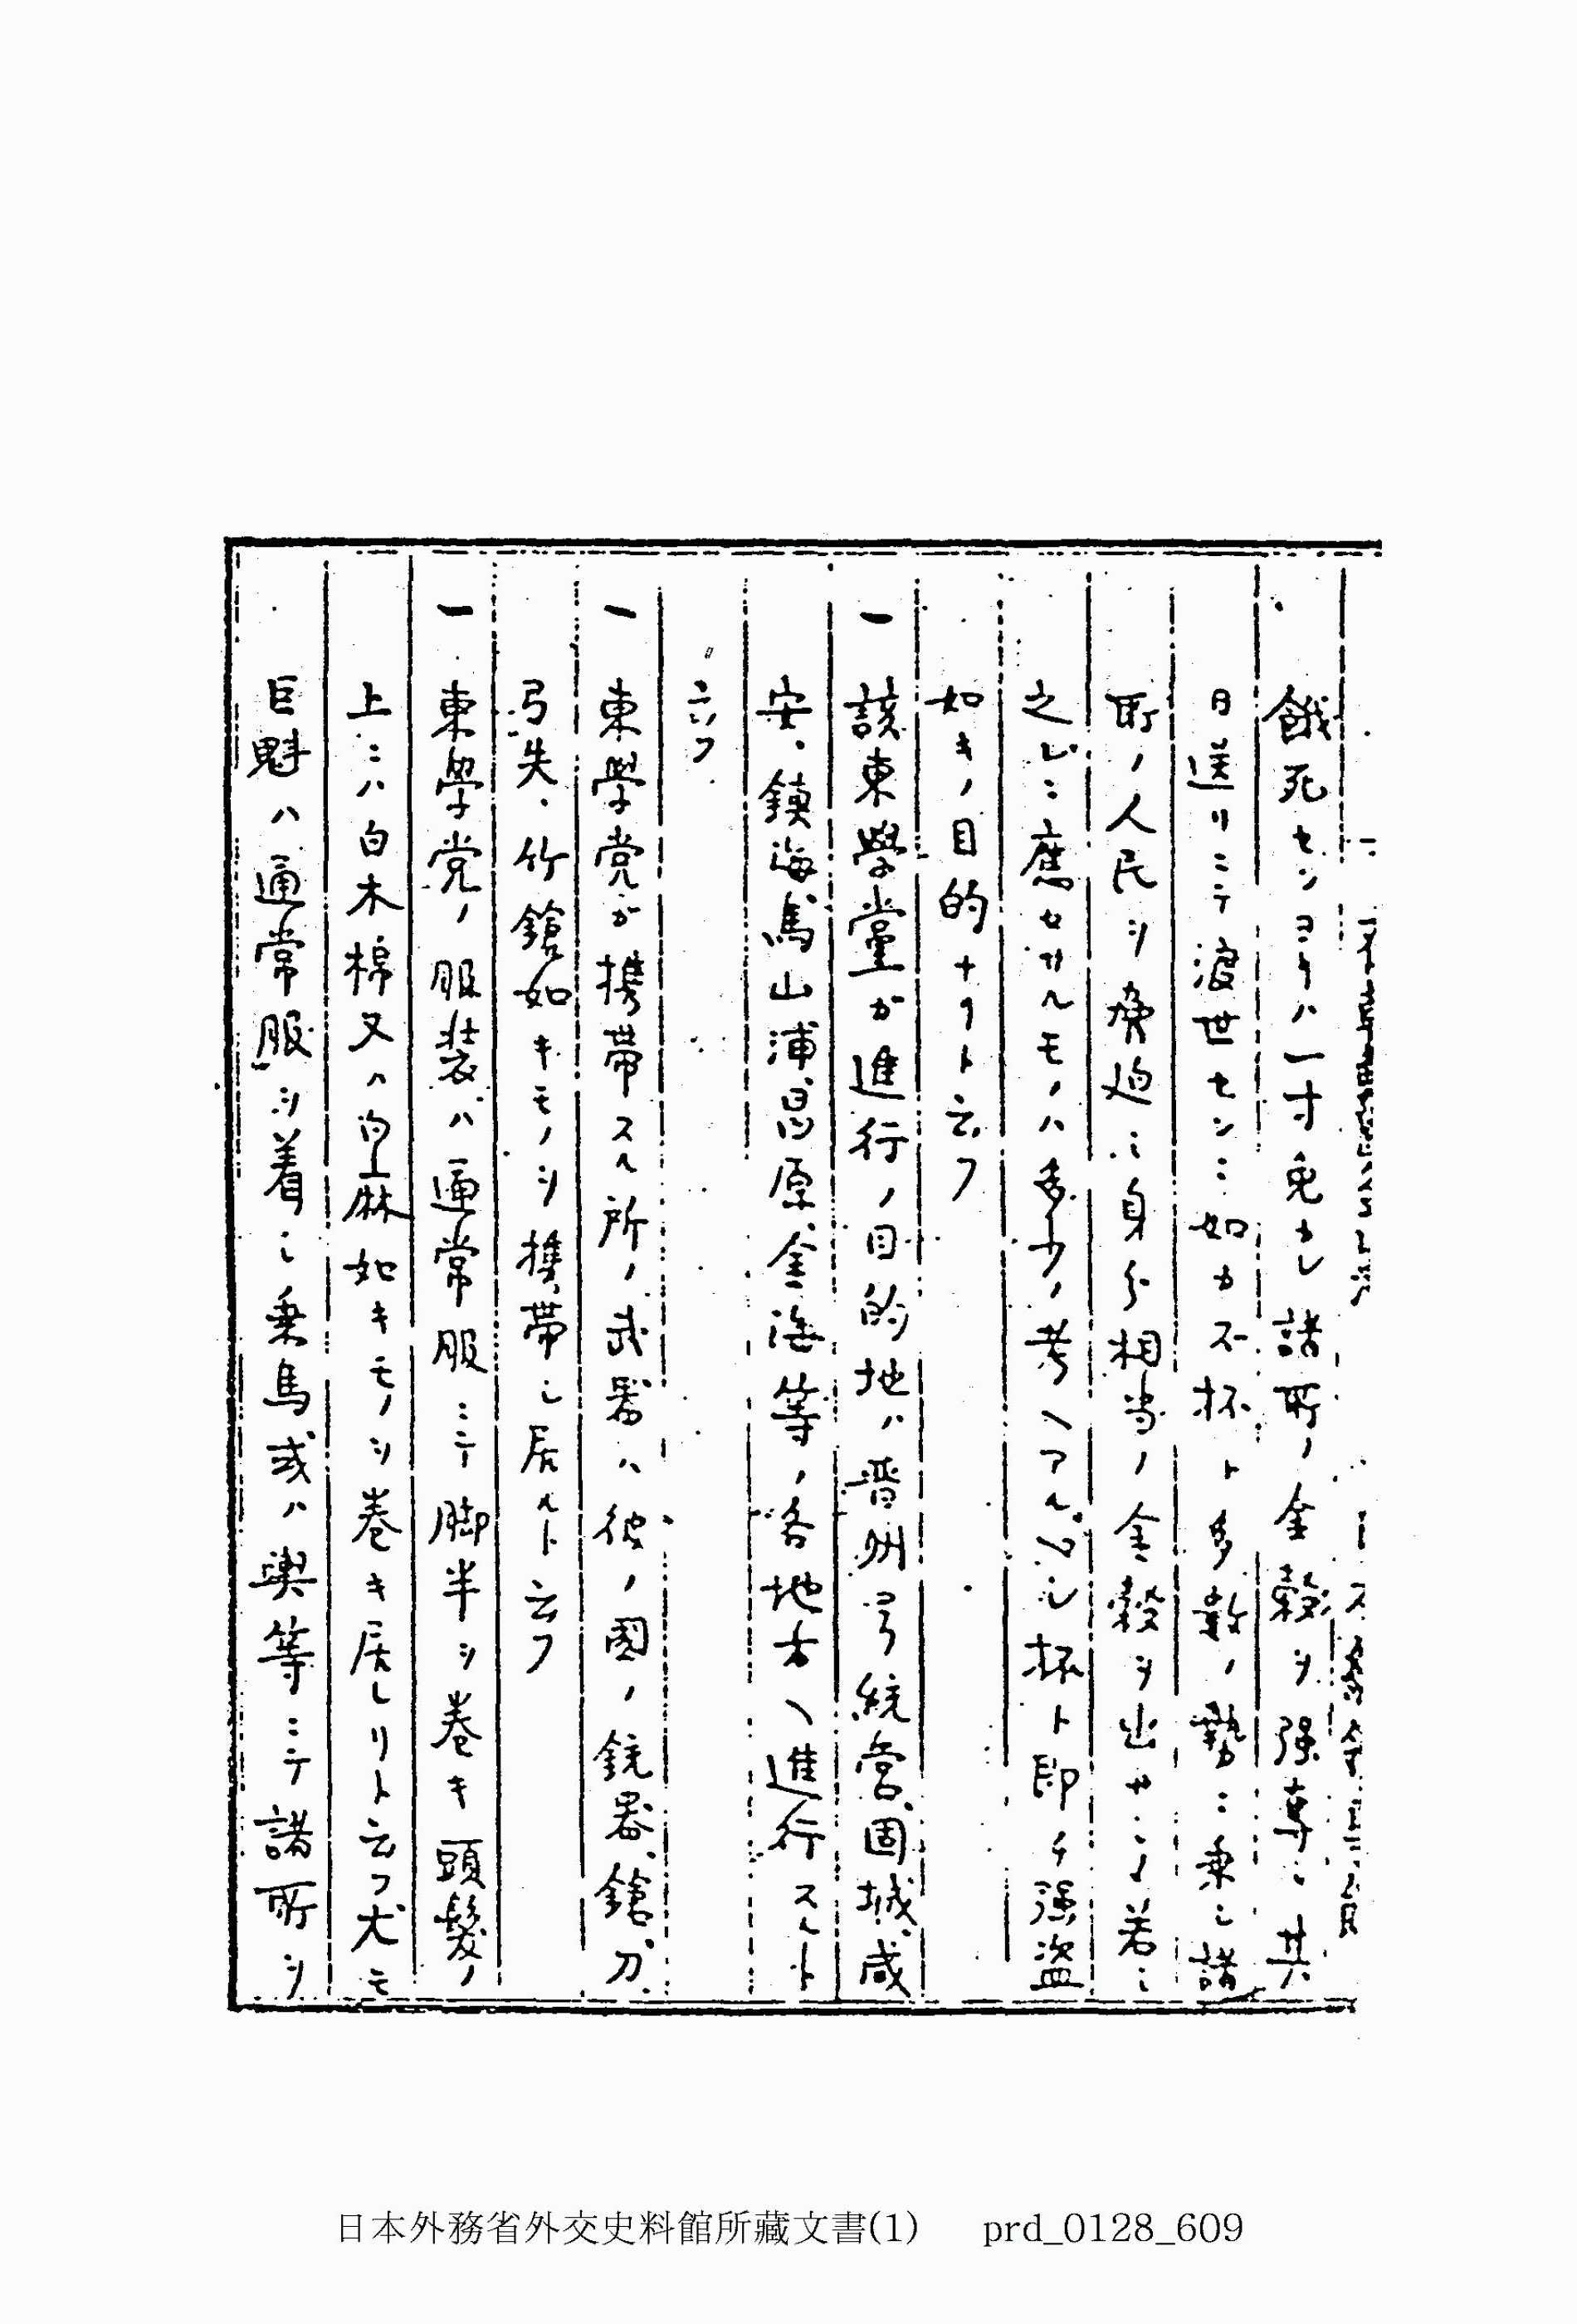 餓死センヨリハ一寸免カレ諸所ノ金穀ヲ强奪シ其
日送リニテ渡世センニ如カス杯ト多数ノ勢ニ乗シ諸
所ノ人民ヲ脅迫シ身分相当ノ金穀ヲ出サシメ若シ
之レニ應セサルモノハ多少ノ考ヘアルヘシ杯ト即チ强盗
如キノ目的ナリト云フ
一 該東學黨ガ進行ノ目的地ハ晋州ヨリ統営、固城、咸
安、鎮海、馬山浦、昌原、金海等ノ各地方ヘ進行スルト
云フ
一 東學党ガ携帯スル所ノ武器ハ彼ノ國ノ銃器、鎗、刀、
弓矢、竹鎗如キモノヲ携帯シ居ルト云フ
一 東學党ノ服装ハ通常服ニテ脚半ヲ巻キ頭髪ノ
上ニハ白木棉又ハ白麻如キモノヲ巻キ居レリト云フ尤モ
巨魁ハ通常服ヲ着シ乗馬或ハ輿等ニテ諸所ヲ
日本外務省外交史料館所藏文書(1) prd_0128_609